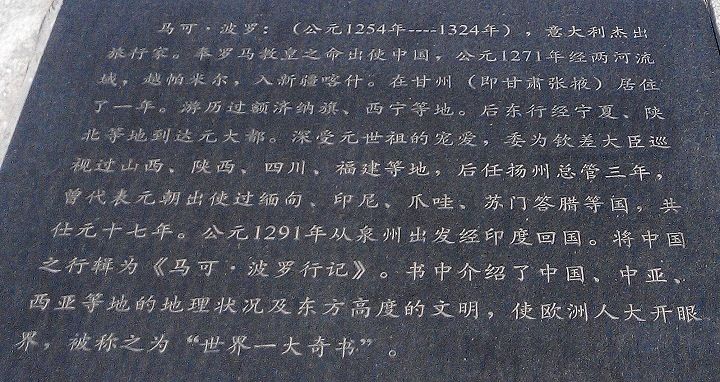 马可·波罗：（公元1254年----1324年），意大利杰出
旅行家。奉罗马教皇之命出使中国，公元1271年经两河流
域，越帕米尔，入新疆喀什。在甘州（即甘肃张掖）居住
了一年。游历过额济纳旗、西宁等地。后东行经宁夏、陕
北等地到达元大都。深受元世祖的宠爱，委为钦差大臣巡
视过山西、陕西、四川、福建等地，后任扬州总管三年，
曾代表元朝出使过缅甸、印尼、爪哇、苏门答腊等国，共
仕元十七年。公元1291年从泉州出发经印度回国。将中国
之行辑为《马可·波罗行记》。书中介绍了中国、中亚、
西亚等地的地理状况及东方高度的文明，使欧洲人大开眼
界，被称之为“世界一大奇书”。